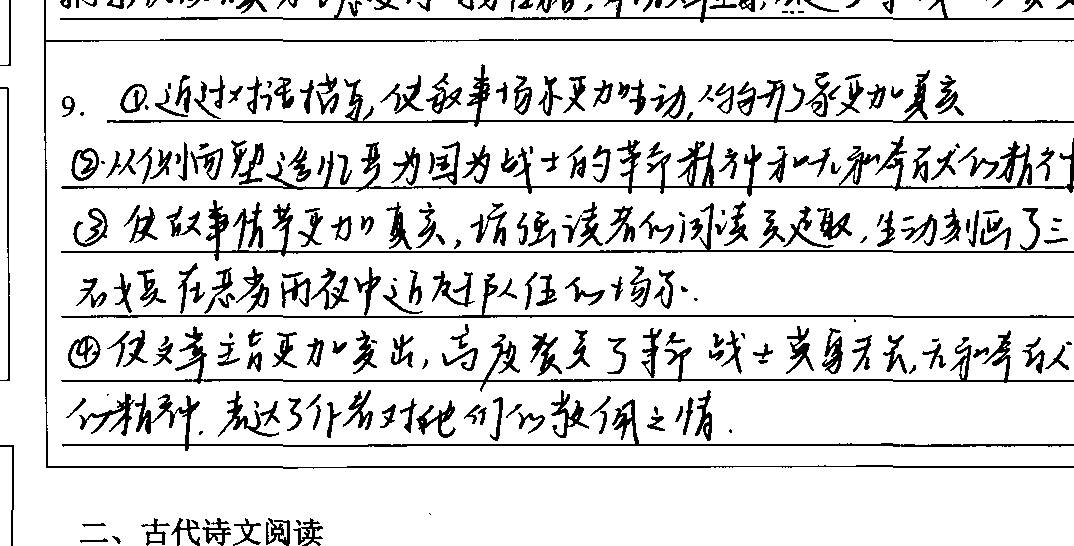 9. ①.近过对话描写,使叙事场景更加生动,人物形象更加真实
②.从侧面塑造忆哥为国为战士的革命精神和无私奉献的精神
③.使故事情节更加真实,增强读者的阅读兴趣,生动刻画了三
名战员在恶劣雨夜中追赶队伍的场景.
④使文章主旨更加突出,高度赞美了革命战士英勇无畏,无私奉献
的精神.表达了作者对他们的敬佩之情.
二、古代诗文阅读